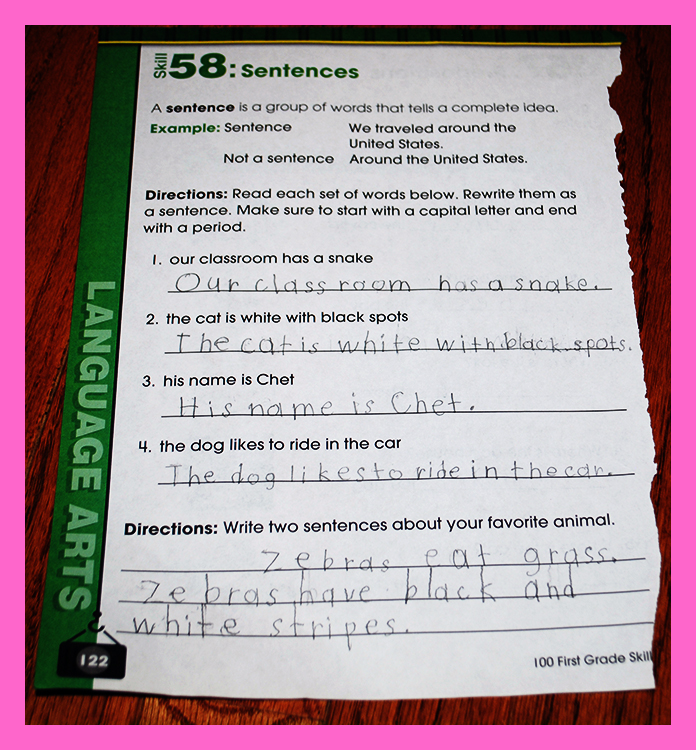 Skill 58: Sentences
A sentence is a group of words that tells a complete idea.
Example: Sentence We traveled around the
United States.
Not a sentence Around the United States.
Directions: Read each set of words below. Rewrite them as
a sentence. Make sure to start with a capital letter and end
with a period.
1. our classroom has a snake
Our class room has a snake.
2. the cat is white with black spots
The cat is white with black spots.
3. his name is Chet
His name is Chet.
4. the dog likes to ride in the car
The dog likes to ride in the car.
Directions: Write two sentences about your favorite animal.
Zebras eat grass.
Zebras have black and
white stripes.
LANGUAGE ARTS
122
100 First Grade Skill